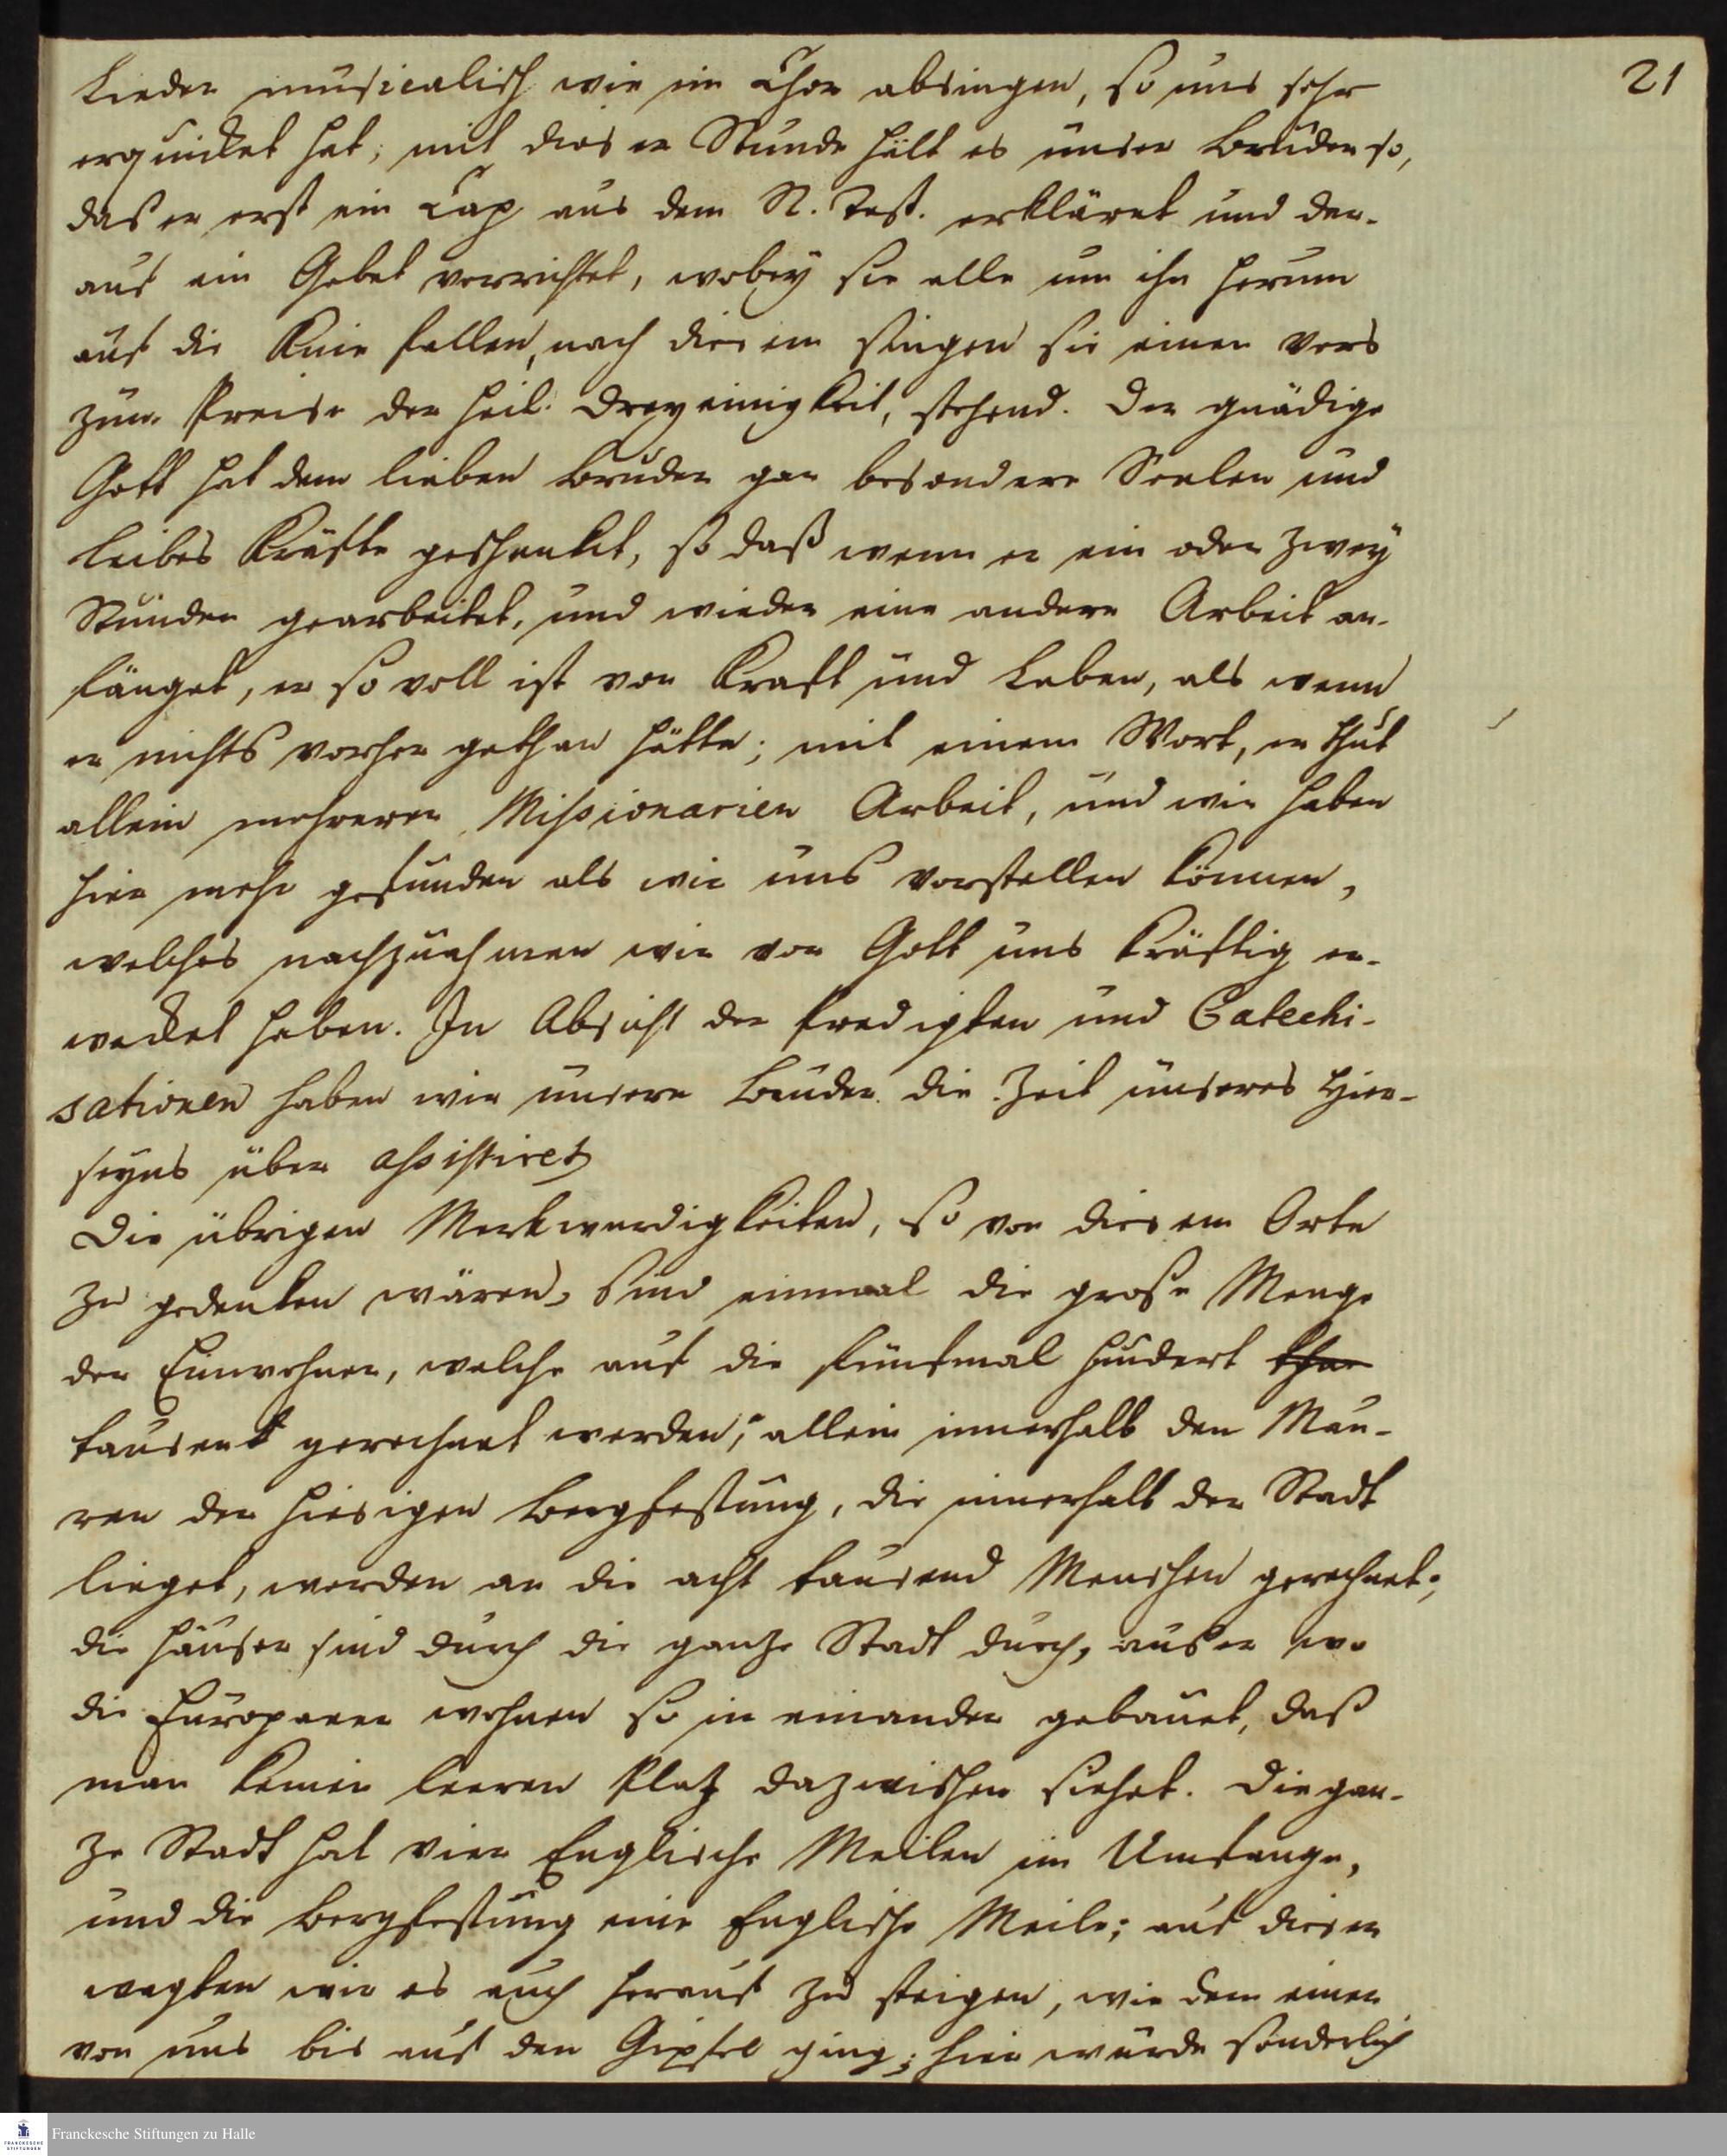 21
Lieder musicalisch wie im Chor absingen, so uns sehr
erquicket hat; mit dieser Stunde hält es unser Bruder so,
daß er erst ein Cap aus dem N. Test. erkläret und dar-
auf ein Gebet verrichtet, wobey sie alle um ihn herum
auf die Knie fallen, nach diesem singen sie einen Vers
zum Preise der heil. Dreyeinigkeit, stehend. Der gnädige
Gott hat dem lieben Bruder gar besondere Seelen und
Leibes Kräfte geschenkt, so daß wenn er ein oder zwey
Stunden gearbeitet, und wieder eine andere Arbeit an-
fänget, er so voll ist von Kraft und Leben, als wenn
er nichts vorher gethan hätte; mit einem Wort, er thut
allein mehrerer Missionarien Arbeit, und wir haben
hier mehr gefunden als wir uns vorstellen können,
welches nachzuahmen wir von Gott uns kräftig er-
wecket haben. In Absicht der Predigten und Catechi-
sationen haben wir unsern Bruder die Zeit unseres Hier-
seyns über assistiret
Die übrigen Merkwurdigkeiten, so von diesem Orte
zu gedenken wären, sind einmaal die große Menge
der Einwohner, welche auf die fünfmal hundert
tausent gerechnet werden; allein innerhalb den Mau-
ren der hiesigen Bergfestung, die innerhalb der Stadt
lieget, werden an die acht tausend Menschen gerechnet;
die Häuser sind durch die ganze Stadt durch, außer wo
die Europaeer wohnen so in einander gebauet, daß
man keinen leeren Platz dazwischen siehet. Die gan-
ze Stadt hat vier Englische Meilen im Umfange,
und die Bergfestung eine Englische Meile; auf dieser
wagten wir es auch herauf zu steigen, wie denn einer
von uns bis auf den Gipfel ging; hier wurde sonderlich
Franckesche Stiftungen zu Halle
FRANCKESCHE
STIFTUNGEN